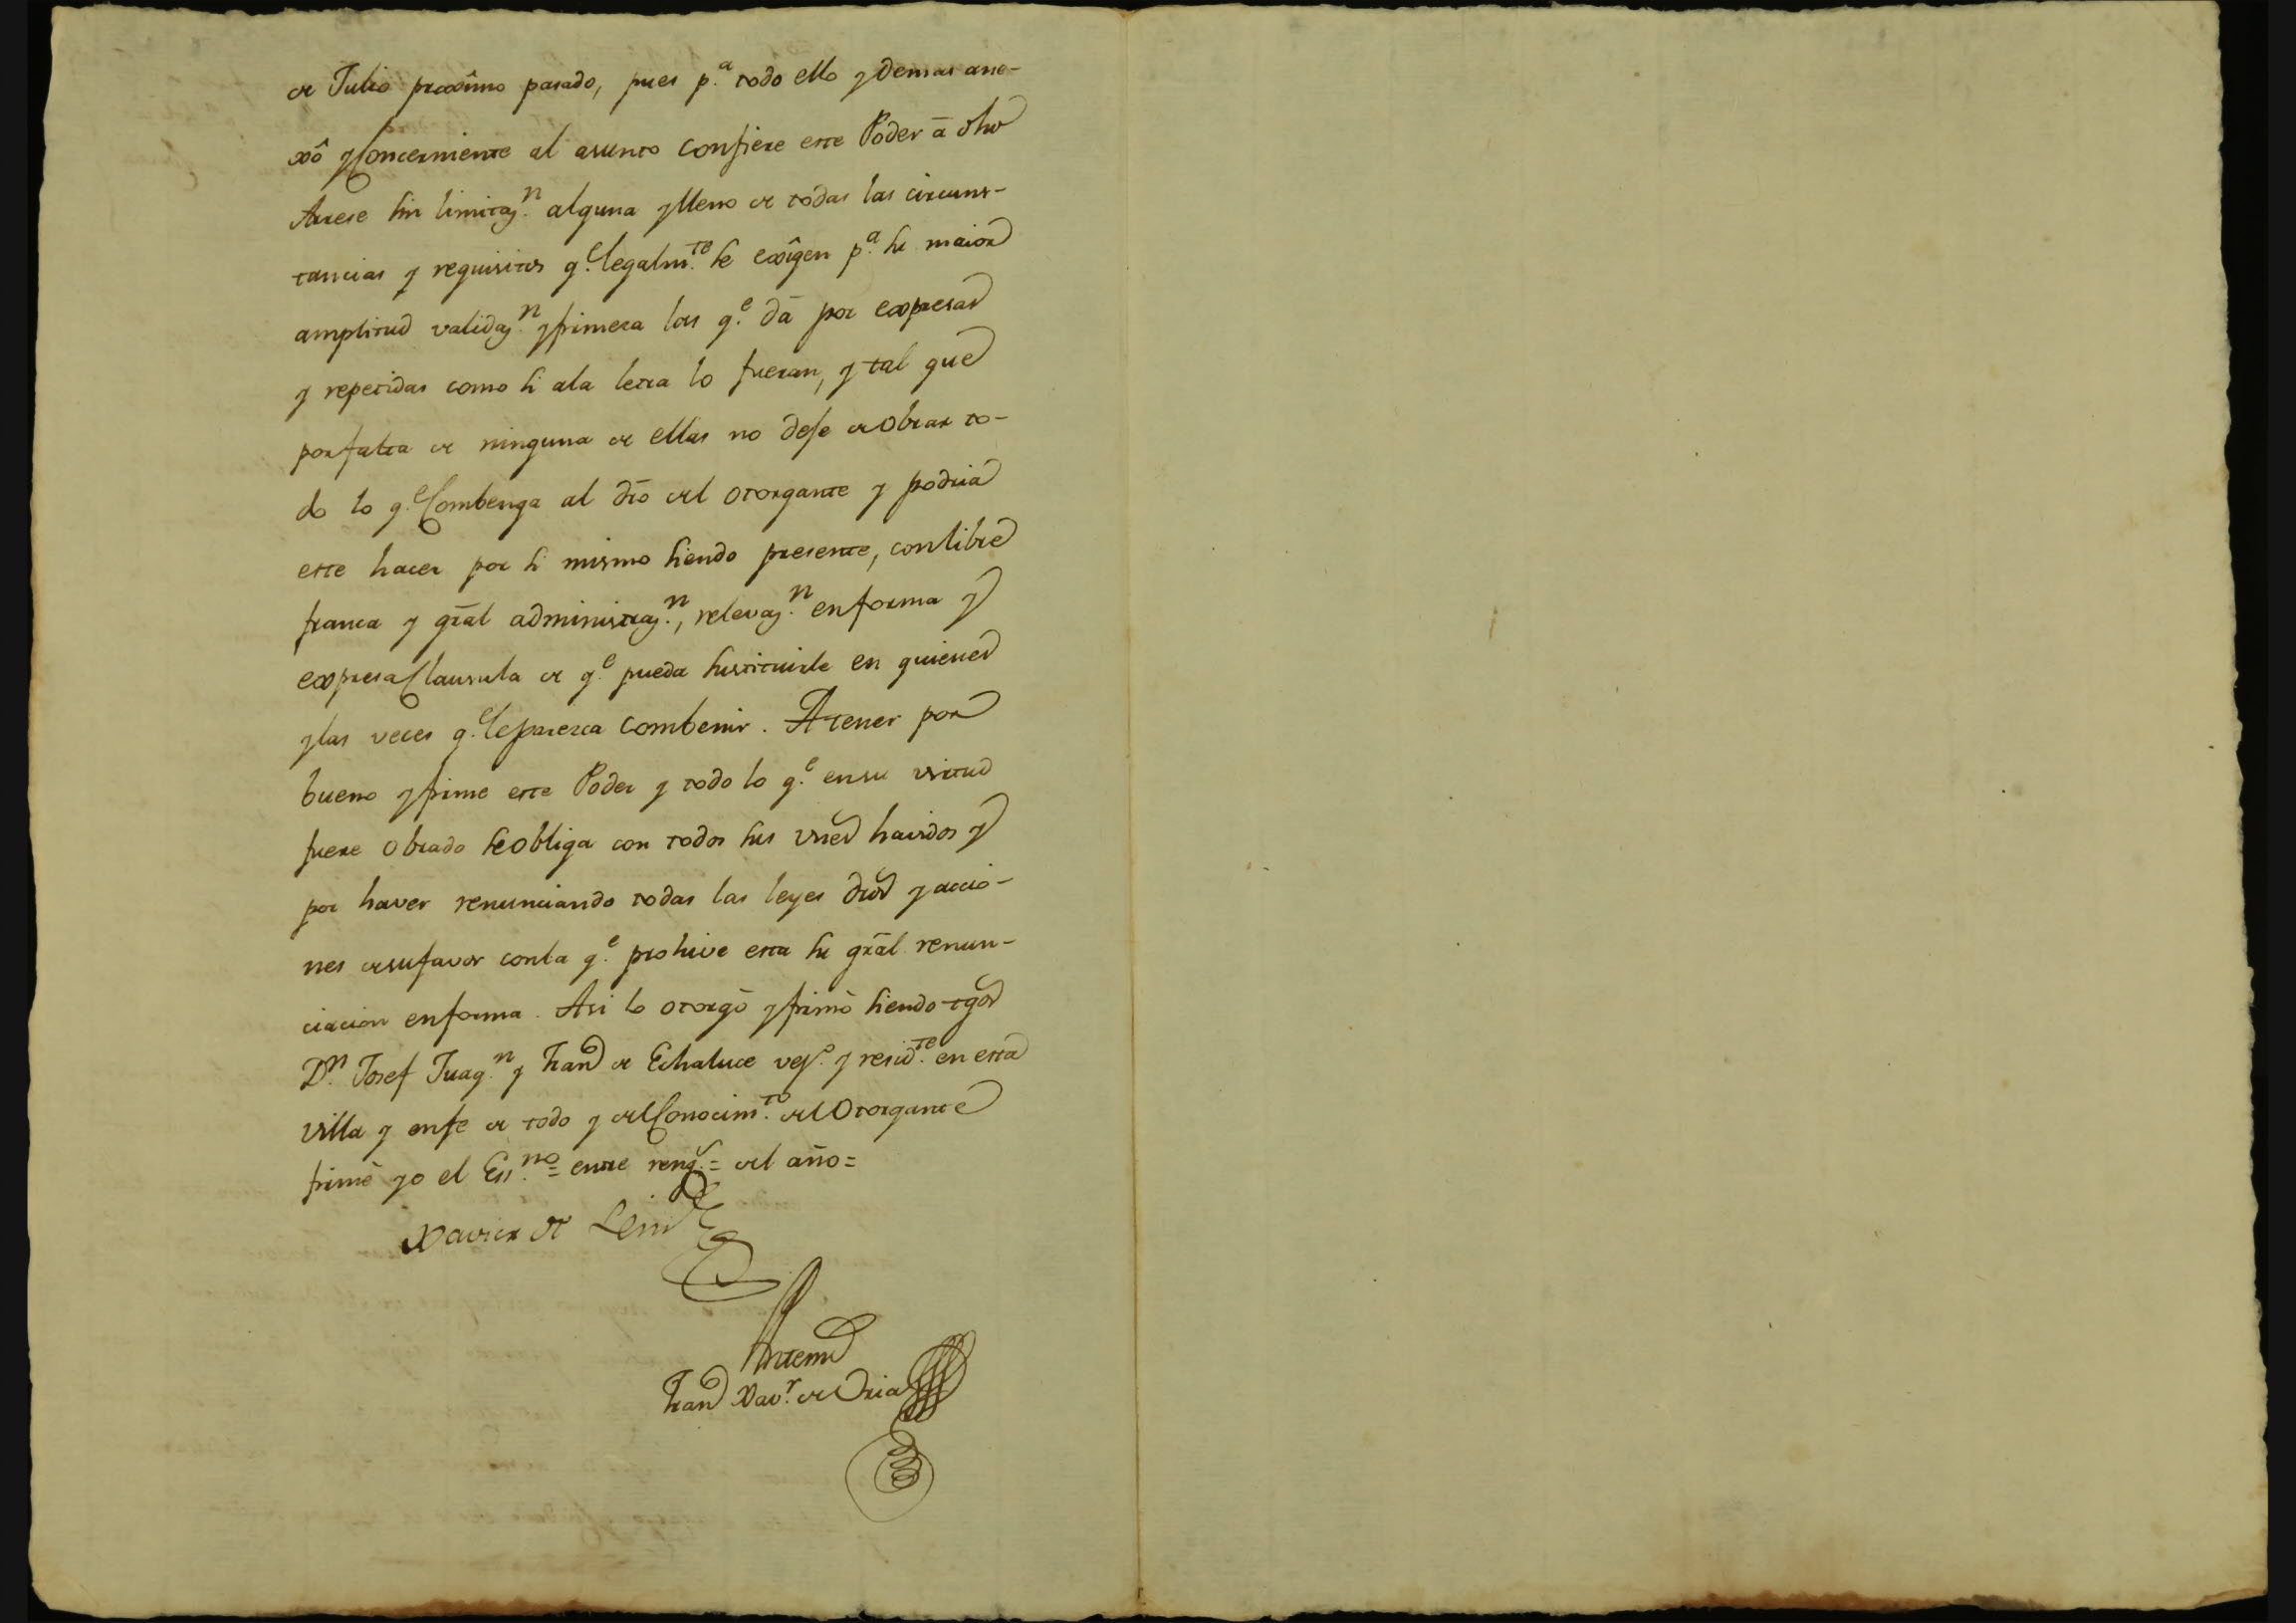 de Julio proxîmo pasado, pues p.ª todo ello y demas ane-
xô y Concerniente al asunto confiere este Poder â dho
Arrese sin limitaz.n alguna y lleno de todas las circuns-
tancias y requisitos q.e legalm.te se exîgen p.ª su maior
amplitud validaz.n y firmeza las q.e dâ por expresas
y repetidas como si ala letra lo fueran, y tal que
por falta de ninguna de ellas no deje de Obrar to-
do lo q.e Combenga al dro del otorgante y podria
este hacer por si mismo siendo presente, con libre
franca y gral administraz.n, relevaz.n en forma y
expresa Clausula de q.e pueda sustituirle en quienes
y las veces q.e le parezca Combenir. A tener por
bueno y firme este Poder y todo lo q.e en su virtud
fuere Obrado se obliga con todos sus vnes havidos y
por haver renunciando todas las leyes dros y accio-
nes de su favor con la q.e prohive esta su gral renun-
ciacion en forma. Asi lo otorgô y firmô siendo tgos
D.n Josef Juaq.n y Fran.co de Echaluce vez.s y resid.te en esta
villa y en fe de todo y del Conocim.to del Otorgante
firmê yo el Ess.no = entre reng.s = del año =
Xavier de
Antemi
Fran.co Xav.r de Oria